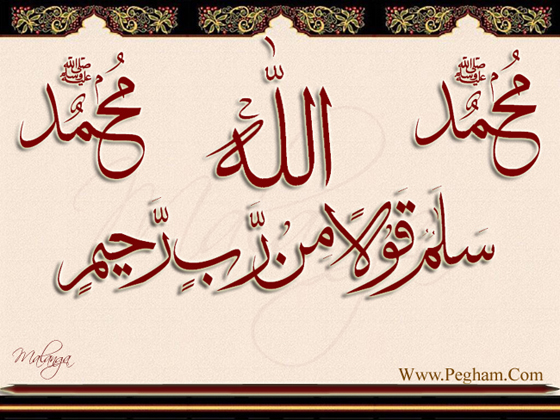 مُحَمَّد ﷺ
اللّٰه
مُحَمَّد ﷺ
سَلٰمٌ قَوْلًا مِنْ رَّبٍّ رَّحِيْمٍ
Malanga
Www.Pegham.Com